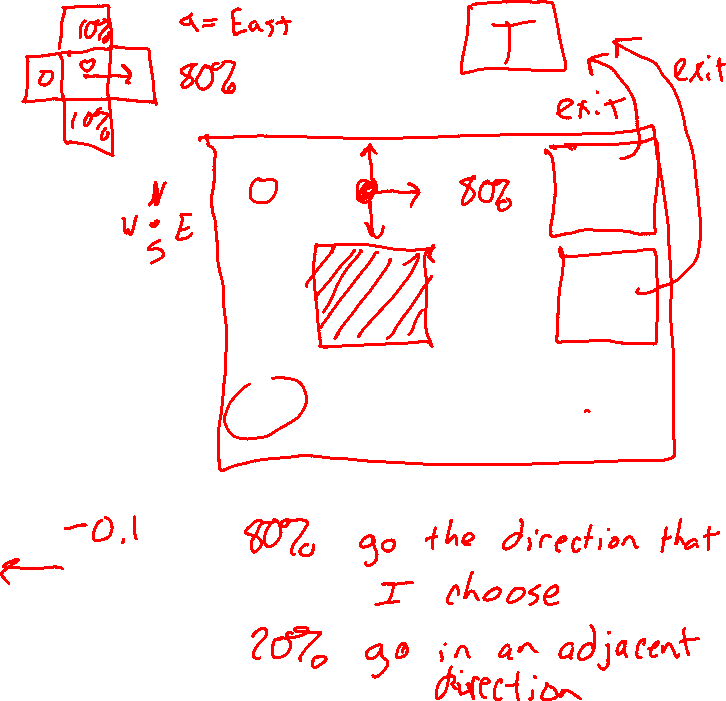 10%
a = East
0
80%
10%
T
exit
exit
N
W E
S
0
80%
-0.1
80% go the direction that
I choose
20% go in an adjacent
direction